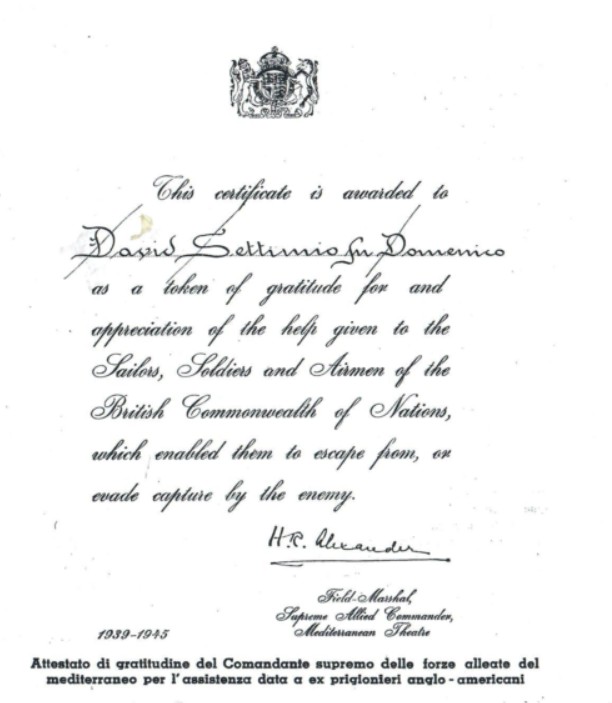 This certificate is awarded to
David Settimio fu Domenico
as a token of gratitude for and
appreciation of the help given to the
Sailors, Soldiers and Airmen of the
British Commonwealth of Nations,
which enabled them to escape from, or
evade capture by the enemy.
H.R. Alexander
Field-Marshal,
Supreme Allied Commander,
1939-1945 Mediterranean Theatre
Attestato di gratitudine del Comandante supremo delle forze alleate del
mediterraneo per l'assistenza data a ex prigionieri anglo-americani